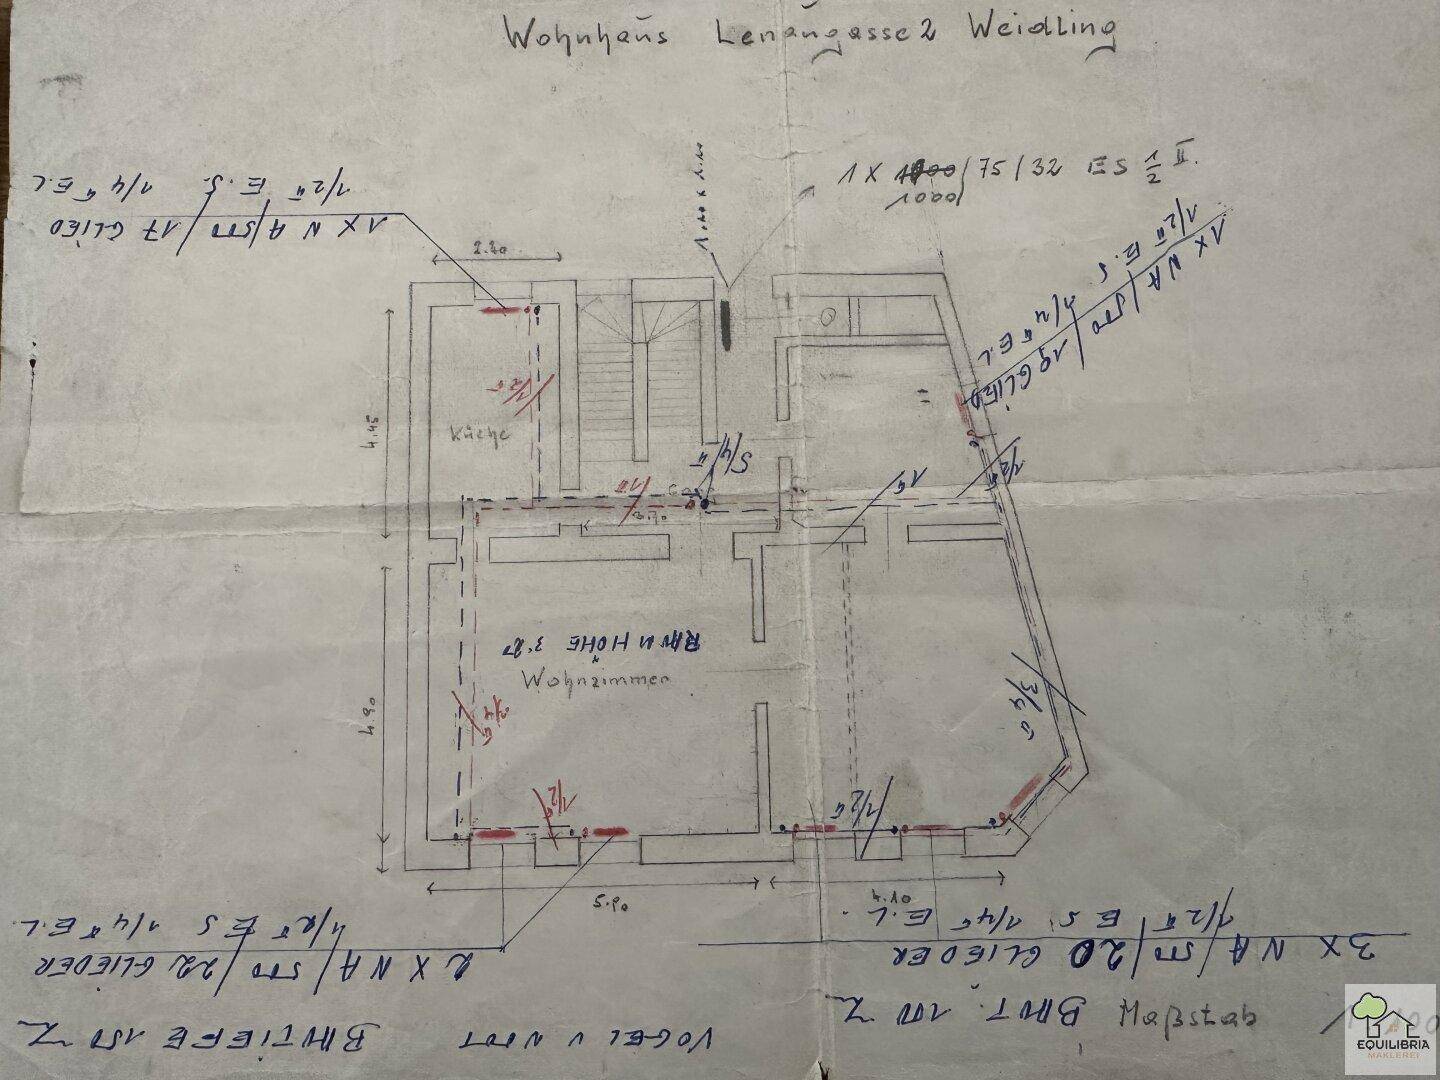 Wohnhaus Lenaugasse 2 Weidling
1.20 x 2.20
1 X 1000/75/32 ES 1/2 II.
1000
1 X N A/500/17 GLIED
1/2" E.S. 1/4" E.L
1 X N A/500/19 GLIED
1/2" E.S 1/4" E.L
2.20
4.45
Küche
1/2"
5/4"
1"
1"
1/2"
3.70
RAUMHÖHE 3.20
Wohnzimmer
4.90
3/4"
3/4"
1/2"
1/2"
5.90
4.10
2 X N A/500/22 GLIEDER
1/2" ES 1/4" E.L.
3 X N A/500/20 GLIEDER
1/2" ES 1/4" E.L.
VOGEL U NOOT BAUTIEFE 150 Z
BAUT. 100 Z
Maßstab
EQUILIBRIA
MAKLEREI